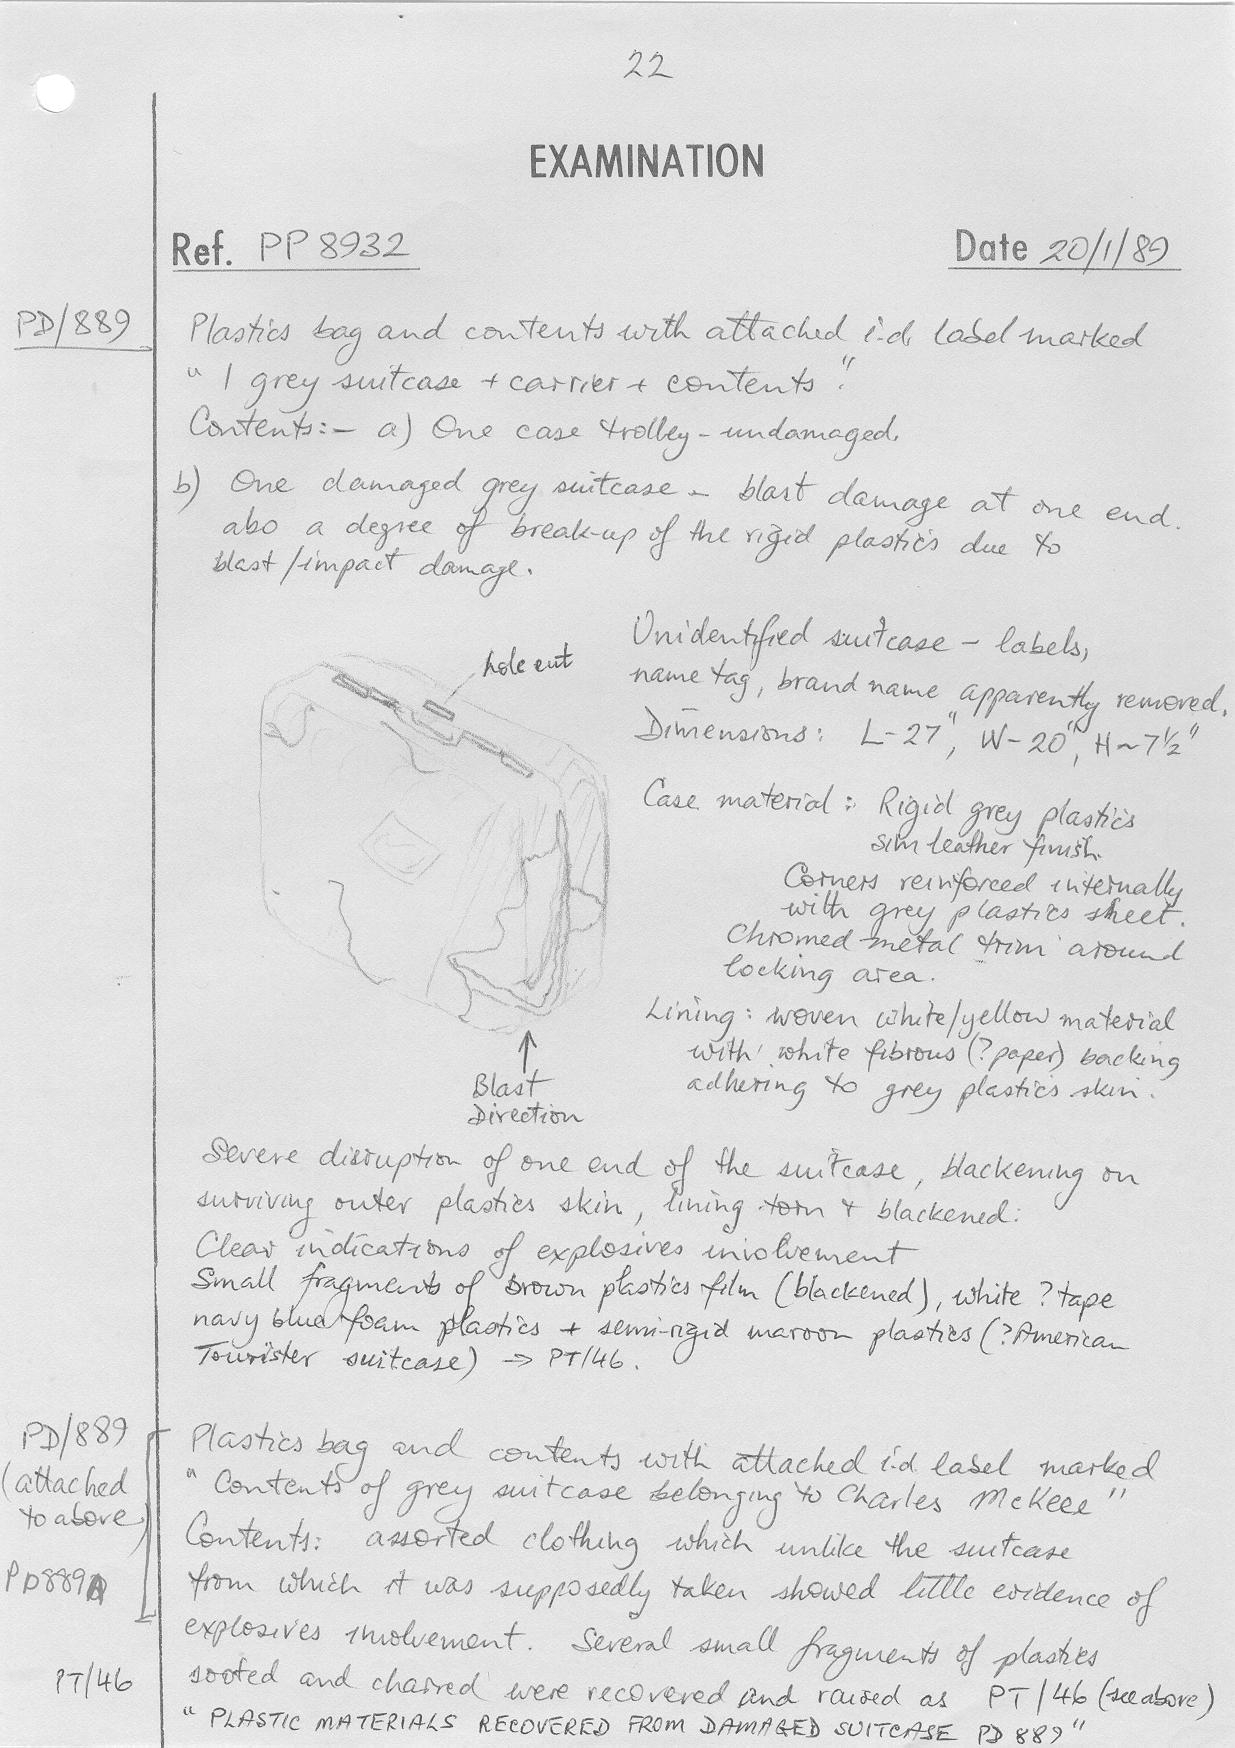 22
EXAMINATION
Ref. PP 8932
Date 20/1/89
PD/889
Plastics bag and contents with attached i.d. label marked
" 1 grey suitcase + carrier + contents ".
Contents:- a) One case trolley - undamaged.
b) One damaged grey suitcase - blast damage at one end.
also a degree of break-up of the rigid plastics due to
blast/impact damage.
hole cut
Unidentified suitcase - labels,
name tag, brand name apparently removed.
Dimensions: L-27", W-20", H~7½"
Case material: Rigid grey plastics
sim leather finish.
Corners reinforced internally
with grey plastics sheet.
Chromed metal trim around
locking area.
Lining: woven white/yellow material
with white fibrous (?paper) backing
adhering to grey plastics skin.
Blast
Direction
Severe disruption of one end of the suitcase, blackening on
surviving outer plastics skin, lining torn + blackened.
Clear indications of explosives involvement
Small fragments of brown plastics film (blackened), white ?tape
navy blue foam plastics + semi-rigid maroon plastics (?American
Tourister suitcase) → PT/46.
PD/889
(attached
to above)
PD889A
Plastics bag and contents with attached i.d. label marked
" Contents of grey suitcase belonging to Charles McKeee "
Contents: assorted clothing which unlike the suitcase
from which it was supposedly taken showed little evidence of
explosives involvement. Several small fragments of plastics
PT/46
sooted and charred were recovered and raised as PT/46 (see above)
" PLASTIC MATERIALS RECOVERED FROM DAMAGED SUITCASE PD 889 "